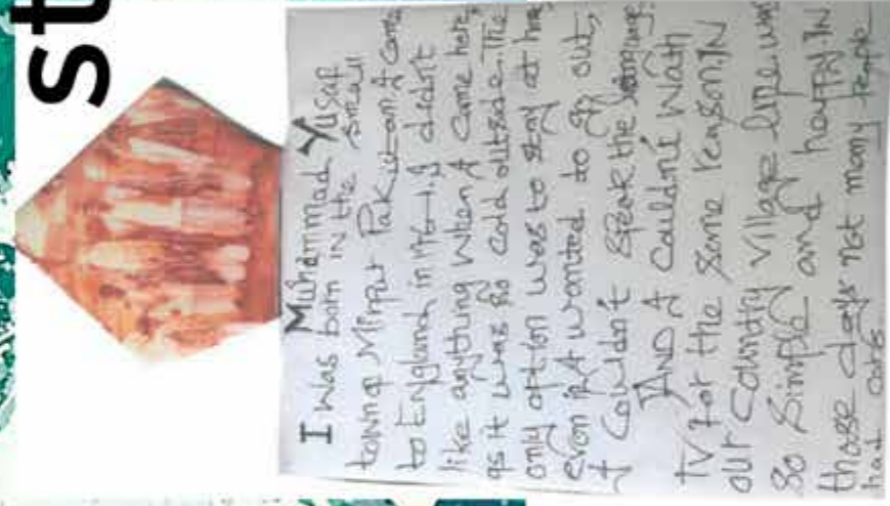 st
I Muhammad Yusaf
was born in the small
town of Mirpur Pakistan I came
to England in 1961. I didn't
like anything when I came here,
as it was so cold outside. The
only option was to stay at home
even if I wanted to go out,
I Couldn't speak the language.
AND I Couldn't Wath
TV For the same reason. IN
our Country Village life was
so Simple and happy. IN
those days not many People
had cars